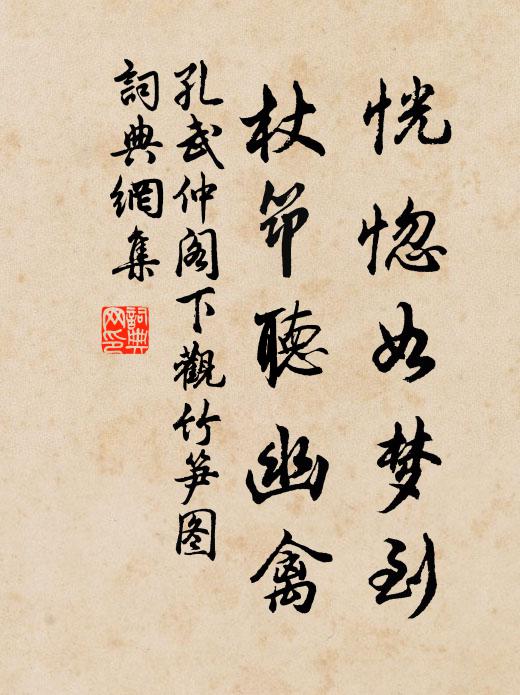 恍惚如梦到
杖笻聽幽禽
孔武仲阁下觀竹笋图
詞典網集
詞典网印